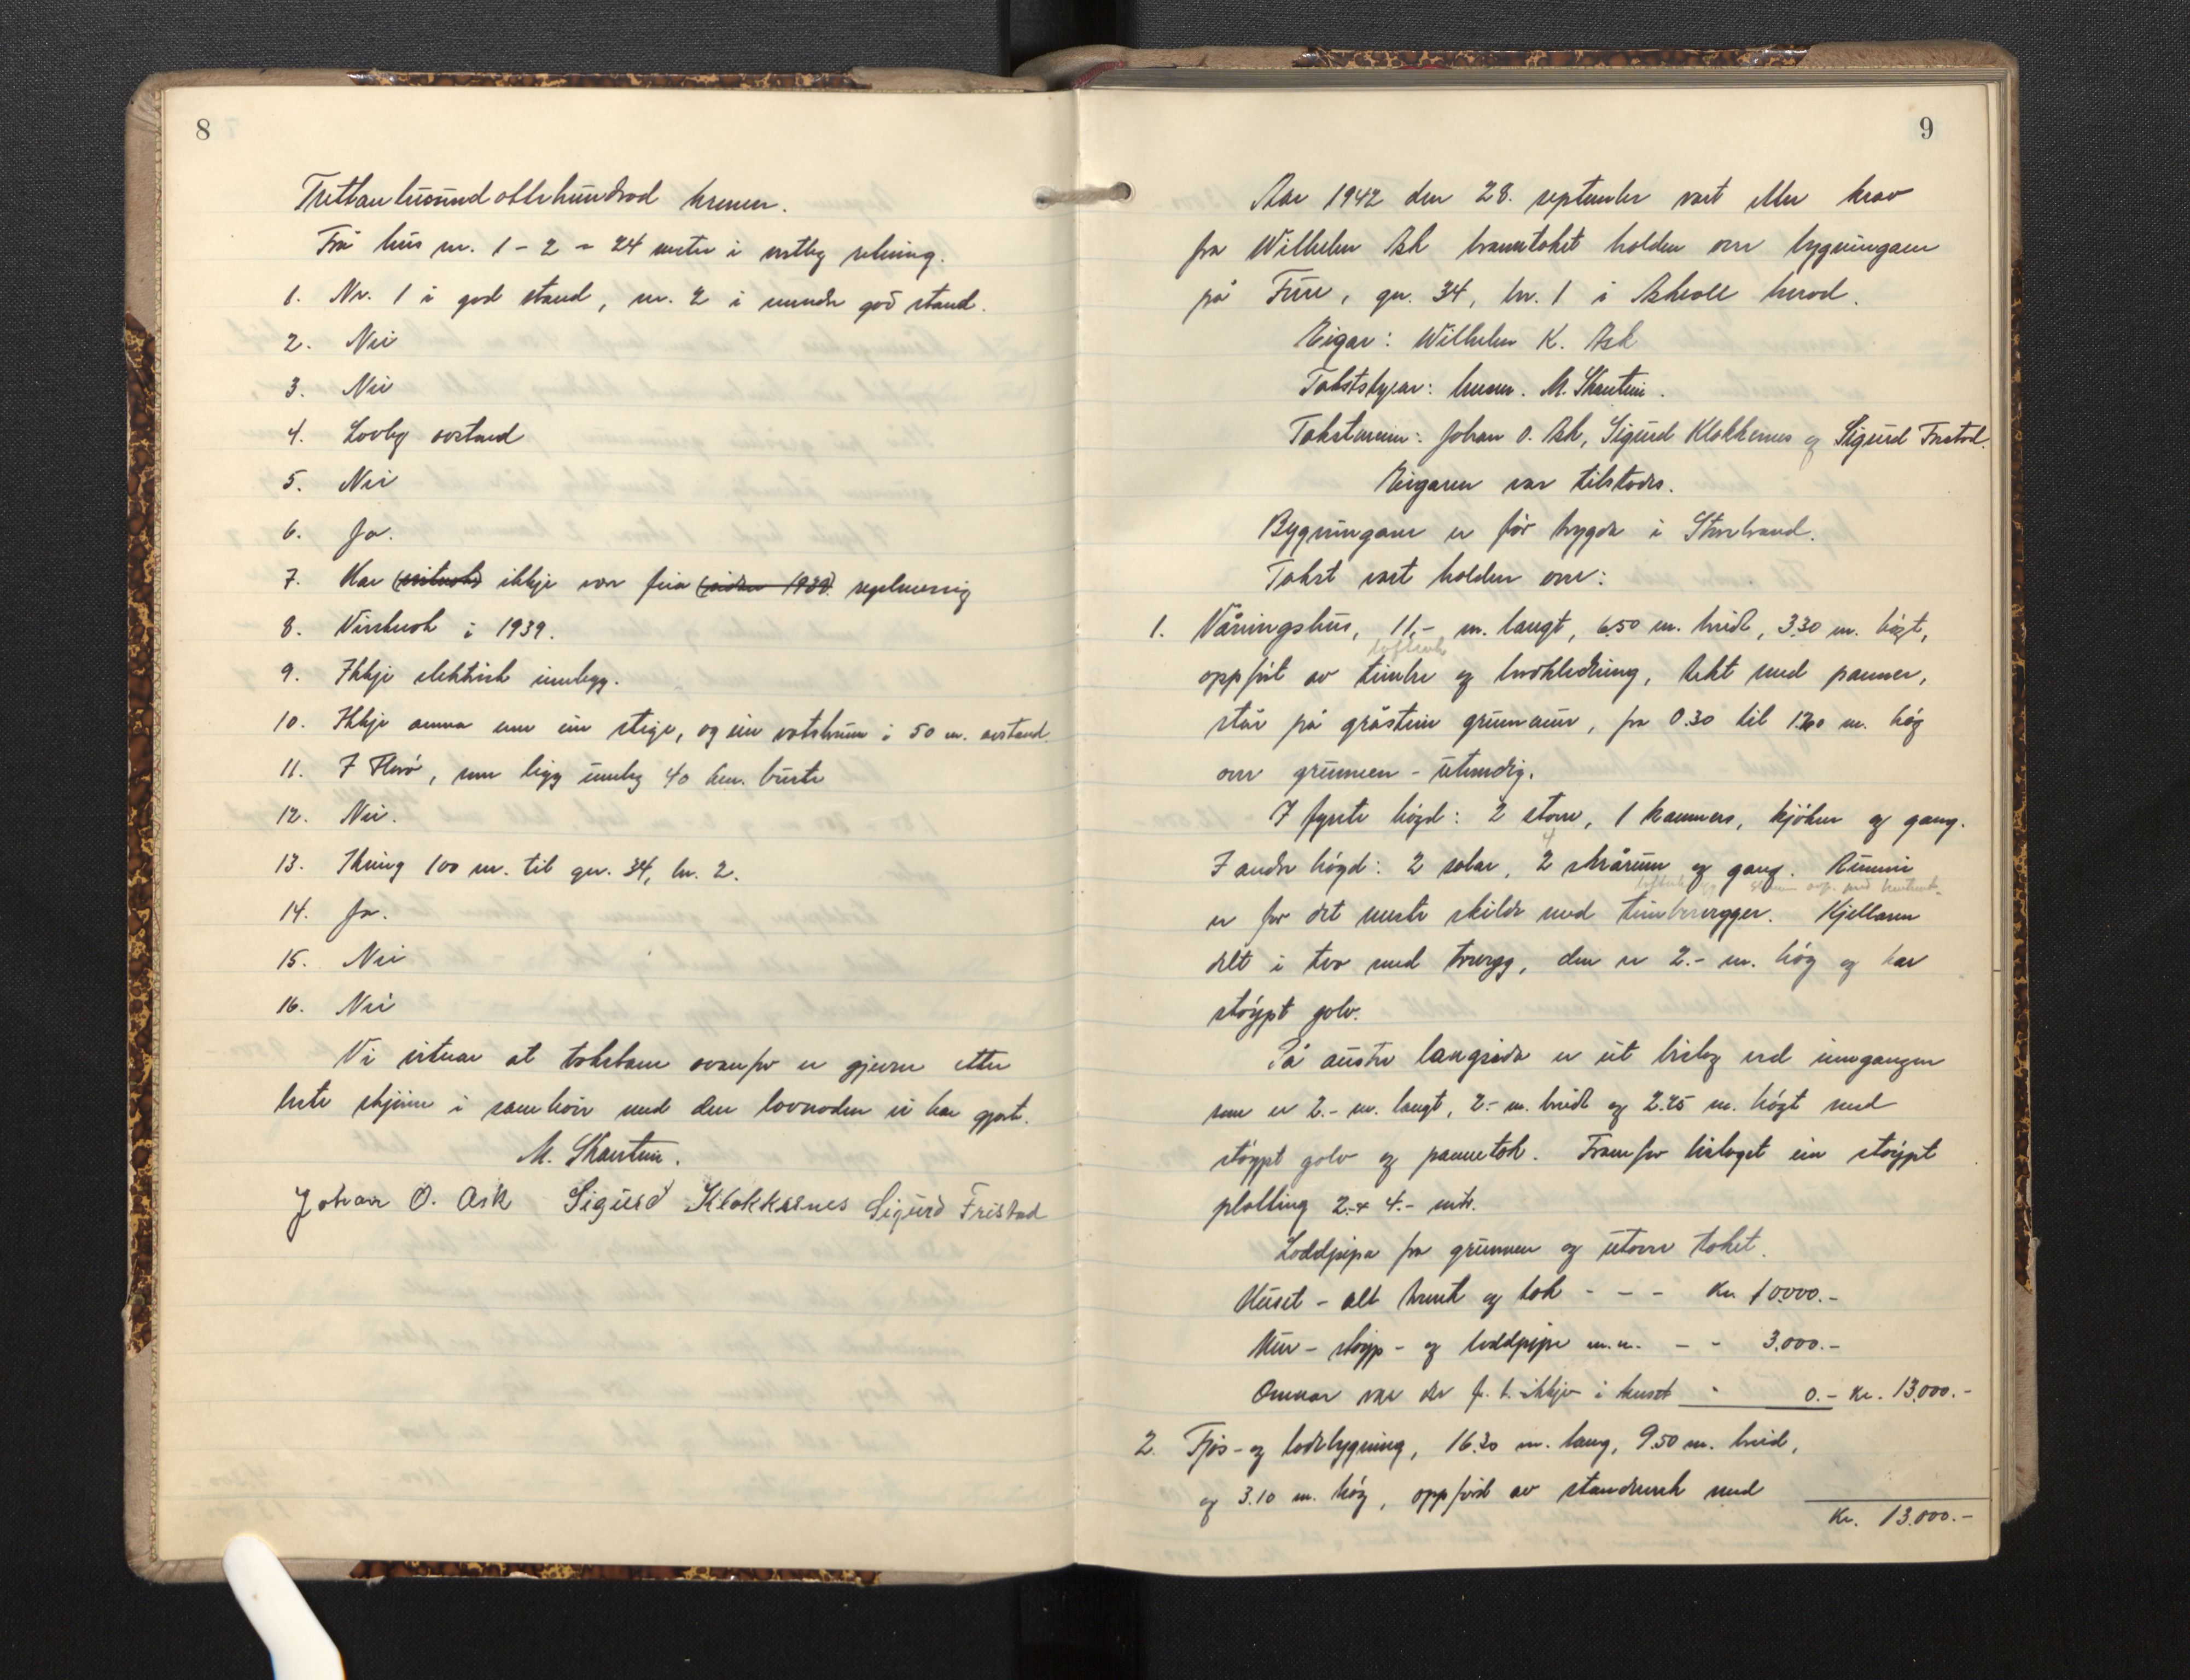 8
Trettan tusund ottehundrad kroner.
Frå hus nr. 1 - 2 = 24 meter i vestleg retning.
1. Nr. 1 i god stand, nr. 2 i mindre god stand.
2. Nei
3. Nei
4. Lovleg avstand
5. Nei
6. Ja.
7. Har ikkje vor feia (sidan 1939) regelmessig
8. Visstnok i 1939.
9. Ikkje elektrisk innlegg.
10. Ikkje anna enn ein stige, og ein vatsbrunn i 50 m. avstand.
11. I Florø, som ligg umlag 40 km. burte
12. Nei.
13. Kring 100 m. til gn. 34, bn. 2.
14. Ja.
15. Nei
16. Nei
Vi vitnar at takstane ovanfor er gjevne etter
beste skjønn i samhøve med den lovnaden vi har gjort.
M. Skarstein.
Johan O. Ask Sigurd Klokkernes Sigurd Fristad
9
Aar 1942 den 28. september vart etter krav
fra Wilhelm Ask branntakst halden over bygningane
på Fure, gn. 34, bn. 1 i Askvoll herad.
Eigar: Wilhelm K. Ask
Takststyrar: lensm. M. Skarstein.
Takstmenn: Johan O. Ask, Sigurd Klokkernes og Sigurd Fristad.
Eigaren var tilstades.
Bygningane er før trygda i Storebrand.
Takst vart halden over:
1. Våningshus, 11,- m. langt, 6.50 m. breidt, 3.30 m. høgt,
oppført av timbre og bordkledning, tekt med panner,
står på gråstein grunnmur, fra 0.30 til 1.20 m. høg
over grunnen - utvendig.
I fyrste høgd: 2 stover, 1 kammers, kjøken og gang.
I andre høgd: 2 salar, 2 skrårum og gang. Rummi
er for det meste skilde med timbrevegger. Kjellaren
delt i two med trevegg, den er 2.- m. høg og har
støypt golv.
På austre langsida er eit bislag ved inngangen
som er 2.- m. langt, 2.- m. breidt og 2.25 m. høgt med
støypt golv og pannetak. Framfor bislaget ein støypt
platting 2.- x 4.- mtr.
Loddpipa fra grunnen og utover taket.
Huset - alt treverk og tak - - - Kr. 10000.-
Mur - støyp - og loddpipe m.m. - - 3.000.-
Omnar var der f. t. ikkje i huset - 0.- Kr. 13.000.-
2. Fjøs- og lødebygning, 16.20 m. lang, 9.50 m. breid,
og 3.10 m. høg, oppført av standverk med
Kr. 13.000.-